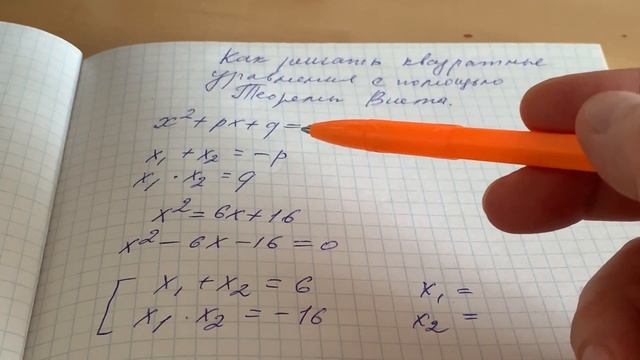 Как решать квадратные
уравнения с помощью
Теоремы Виета.
x² + px + q =
x₁ + x₂ = -p
x₁ · x₂ = q
x² = 6x + 16
x² - 6x - 16 = 0
x₁ + x₂ = 6
x₁ · x₂ = -16
x₁ =
x₂ =